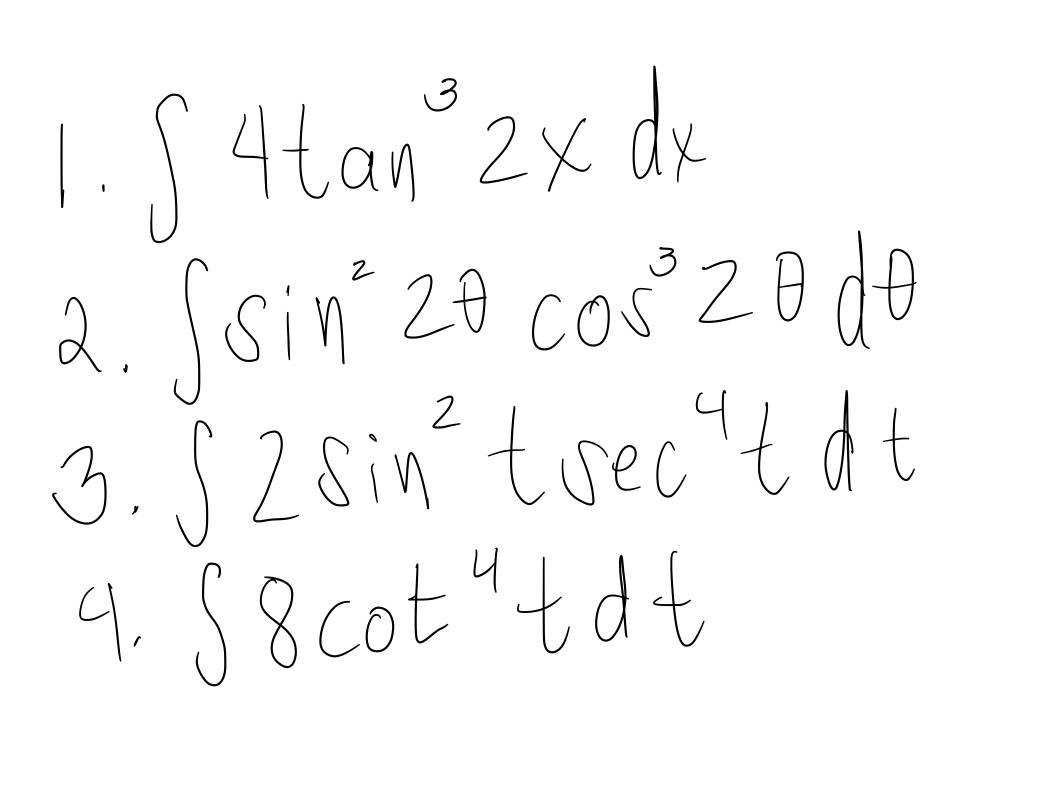 1. ∫ 4tan³ 2x dx
2. ∫ sin² 2θ cos³ 2θ dθ
3. ∫ 2sin² t sec⁴ t dt
4. ∫ 8cot⁴ t dt